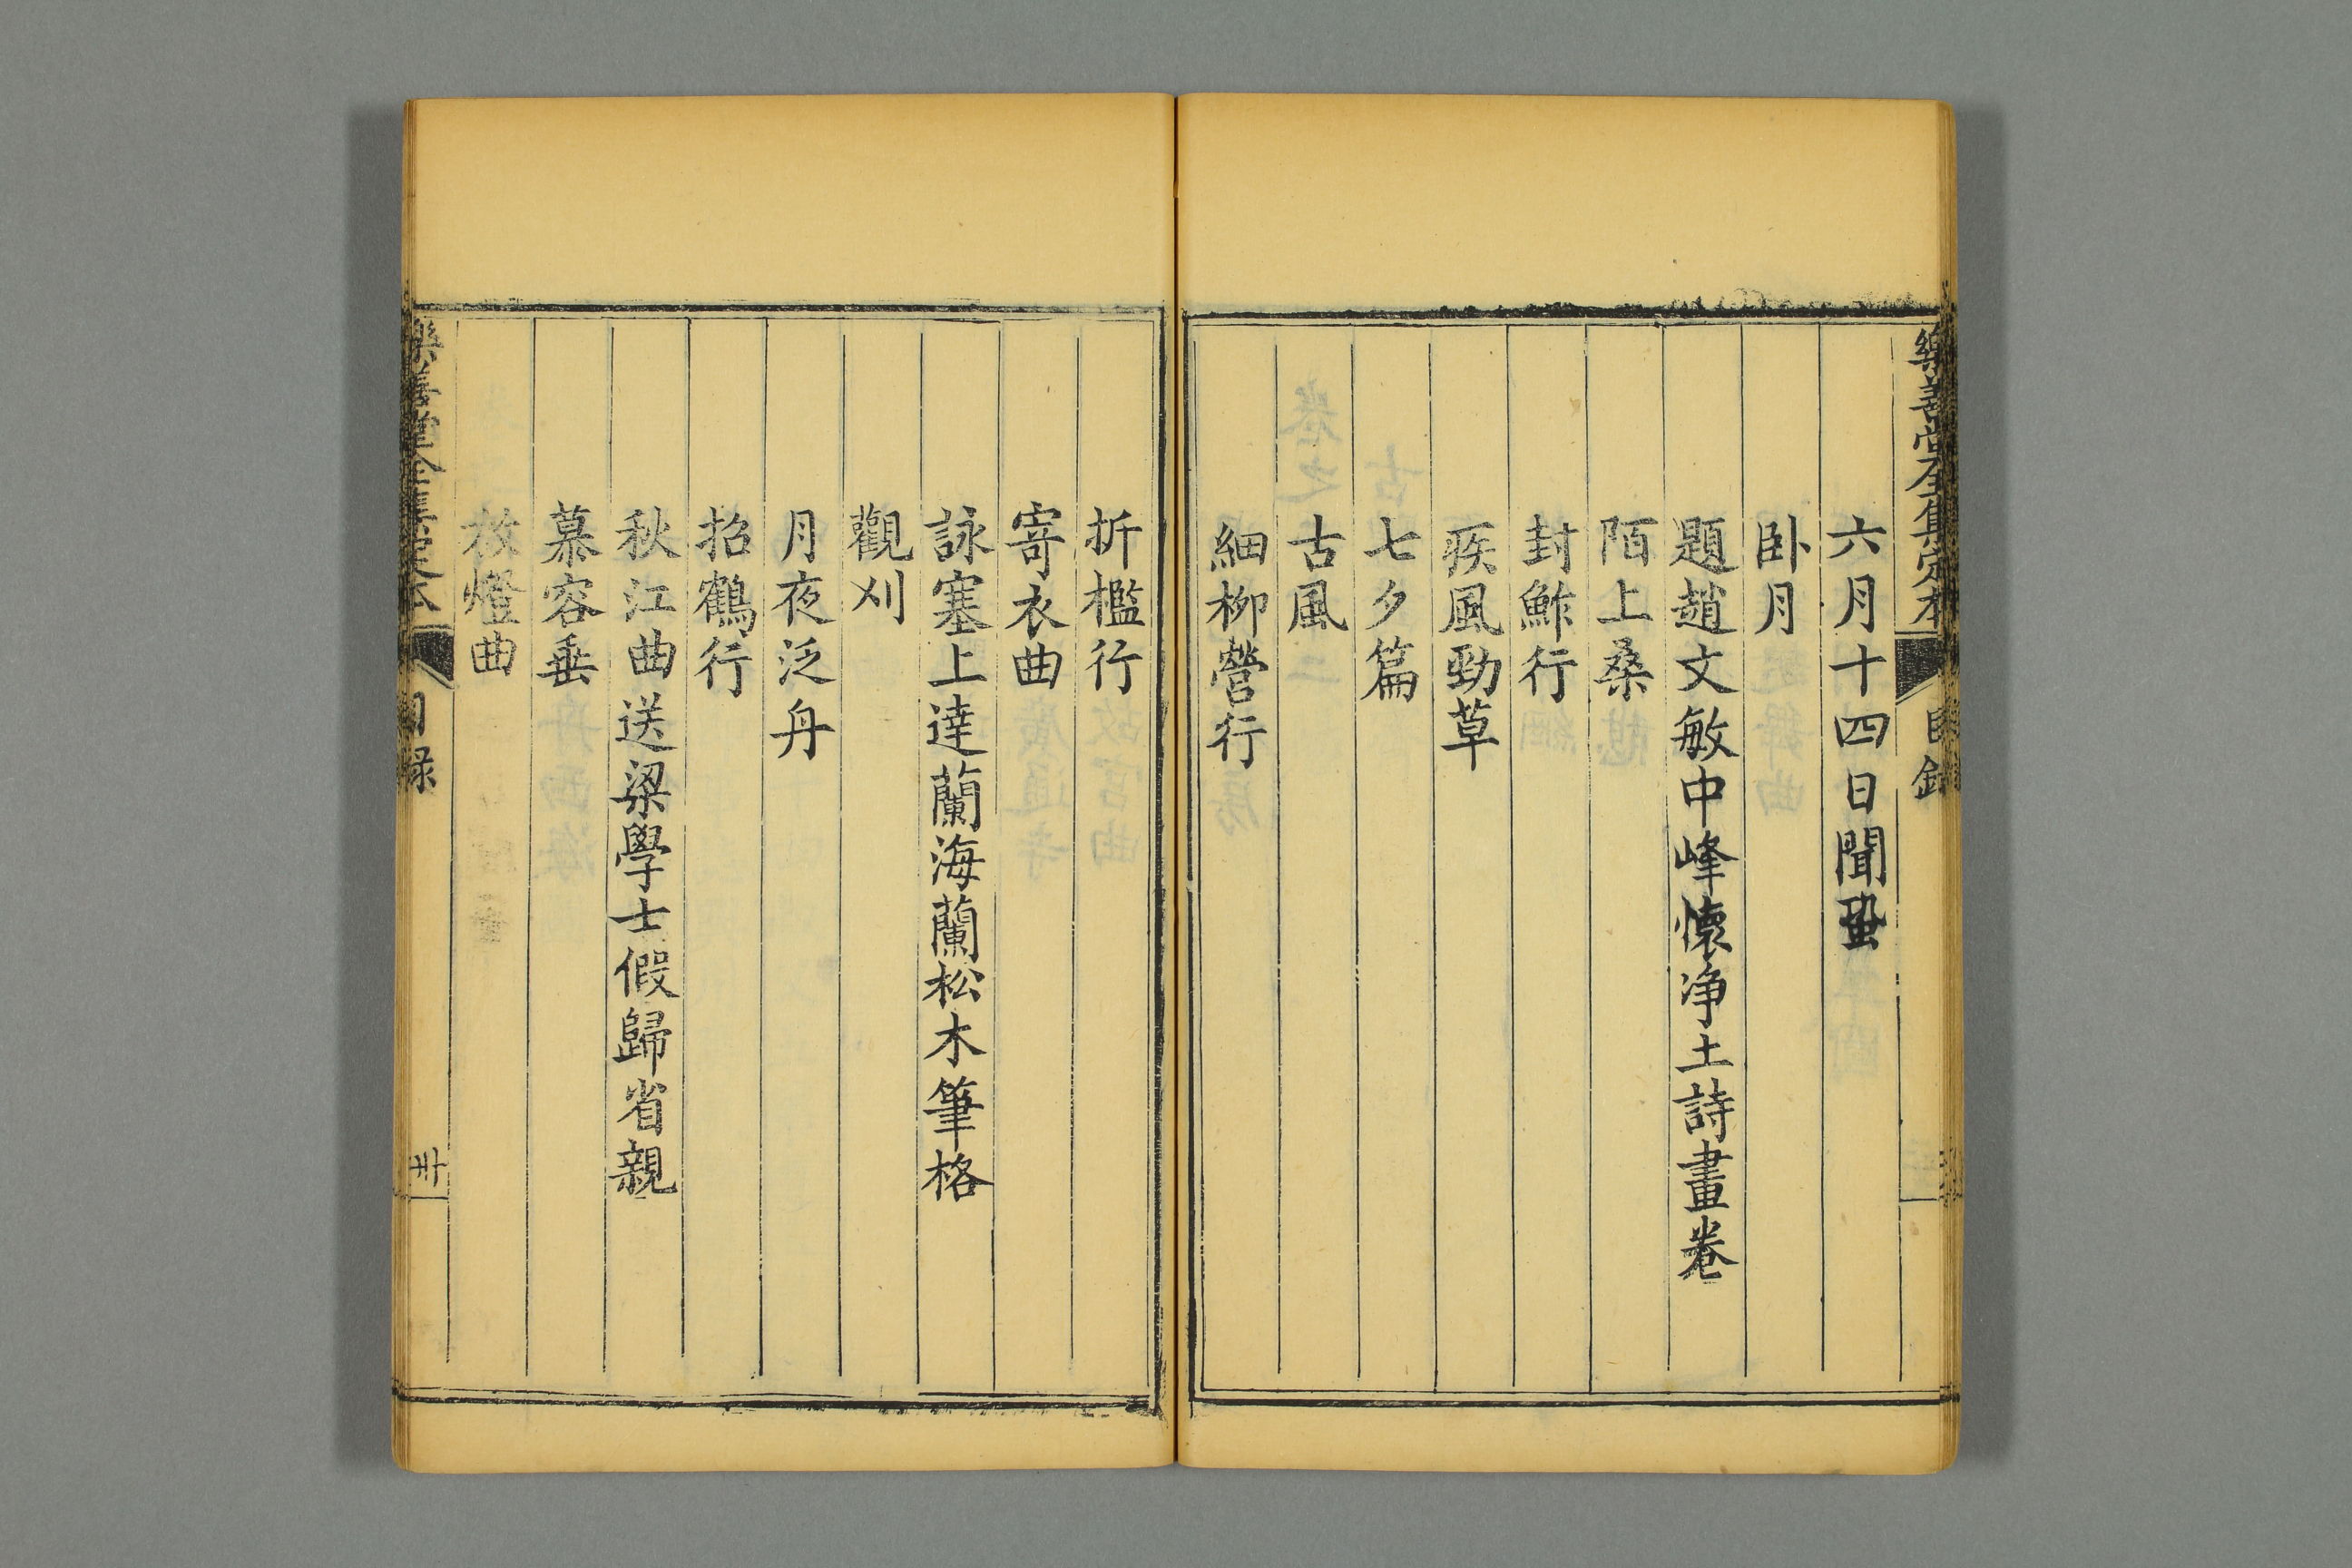 樂善堂全集定本
目錄
六月十四日聞蛩
卧月
題趙文敏中峰懷淨土詩畫卷
陌上桑
封鮓行
疾風勁草
七夕篇
古風
細柳營行
折檻行
寄衣曲
詠塞上達蘭海蘭松木筆格
觀刈
月夜泛舟
招鶴行
秋江曲送梁學士假歸省親
慕容垂
放燈曲
樂善堂全集定本
目錄
卅